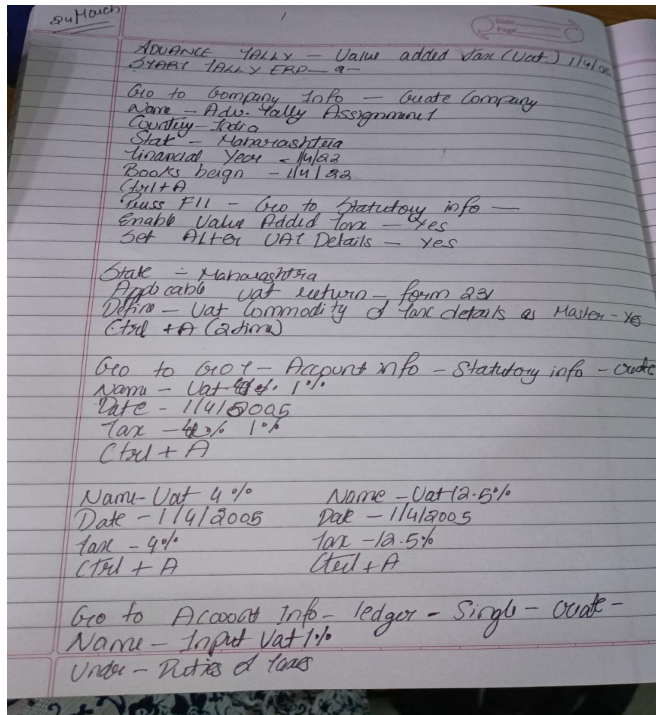 24 March
Date
Page
ADVANCE TALLY - Value added Tax (Vat) 1/4/05
START TALLY ERP - 9 -
Go to Company Info - Create Company
Name - Adv. Tally Assignment
Country - India
State - Maharashtra
Financial Year - 1/4/22
Books beign - 1/4/22
Ctrl + A
Press F11 - Go to Statutory info -
Enable Value Added Tax - Yes
Set ALter VAT Details - Yes
State - Maharashtra
Applicable Vat return - form 231
Define - Vat Commodity & Tax details as Master - Yes
Ctrl + A (2 time)
Go to GOT - Account info - Statutory info - create
Name - Vat 1%
Date - 1/4/2005
Tax - 1%
Ctrl + A
Name - Vat 4% Name - Vat 12.5%
Date - 1/4/2005 Date - 1/4/2005
Tax - 4% Tax - 12.5%
Ctrl + A Ctrl + A
Go to Account Info - ledger - Single - create -
Name - Input Vat 1%
Under - Duties & Taxes